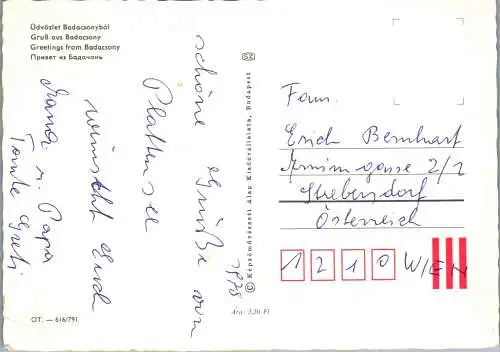 Üdvözlet Badacsonyból
Gruß aus Badacsony
Greetings from Badacsony
Привет из Бадачонь
schöne Grüße von
Plattensee
wünscht Euch
Mama u. Papa
Tante Greti
1978
© Képzőművészeti Alap Kiadóvállalata, Budapest
Fam.
Erich Bernhart
Armingasse 2/1
Strebersdorf
Österreich
1210 WIEN
OT. — 616/791.
Ára: 3,20 Ft